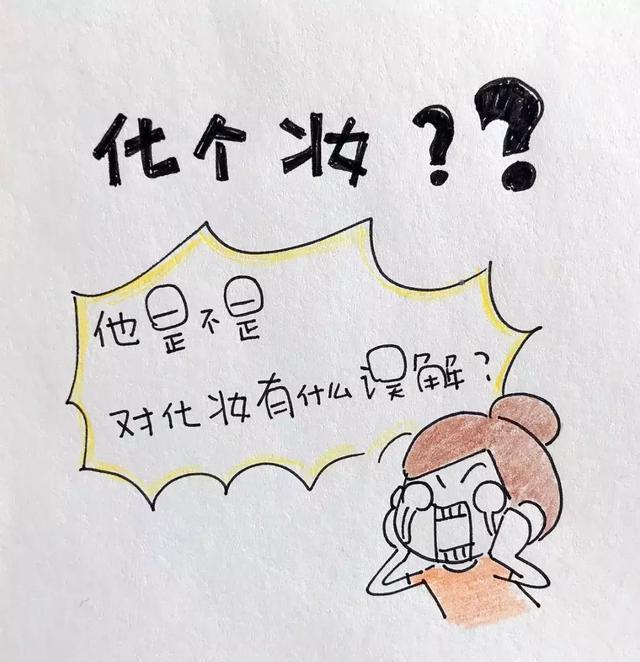 化个妆??
他是不是
对化妆有什么误解?